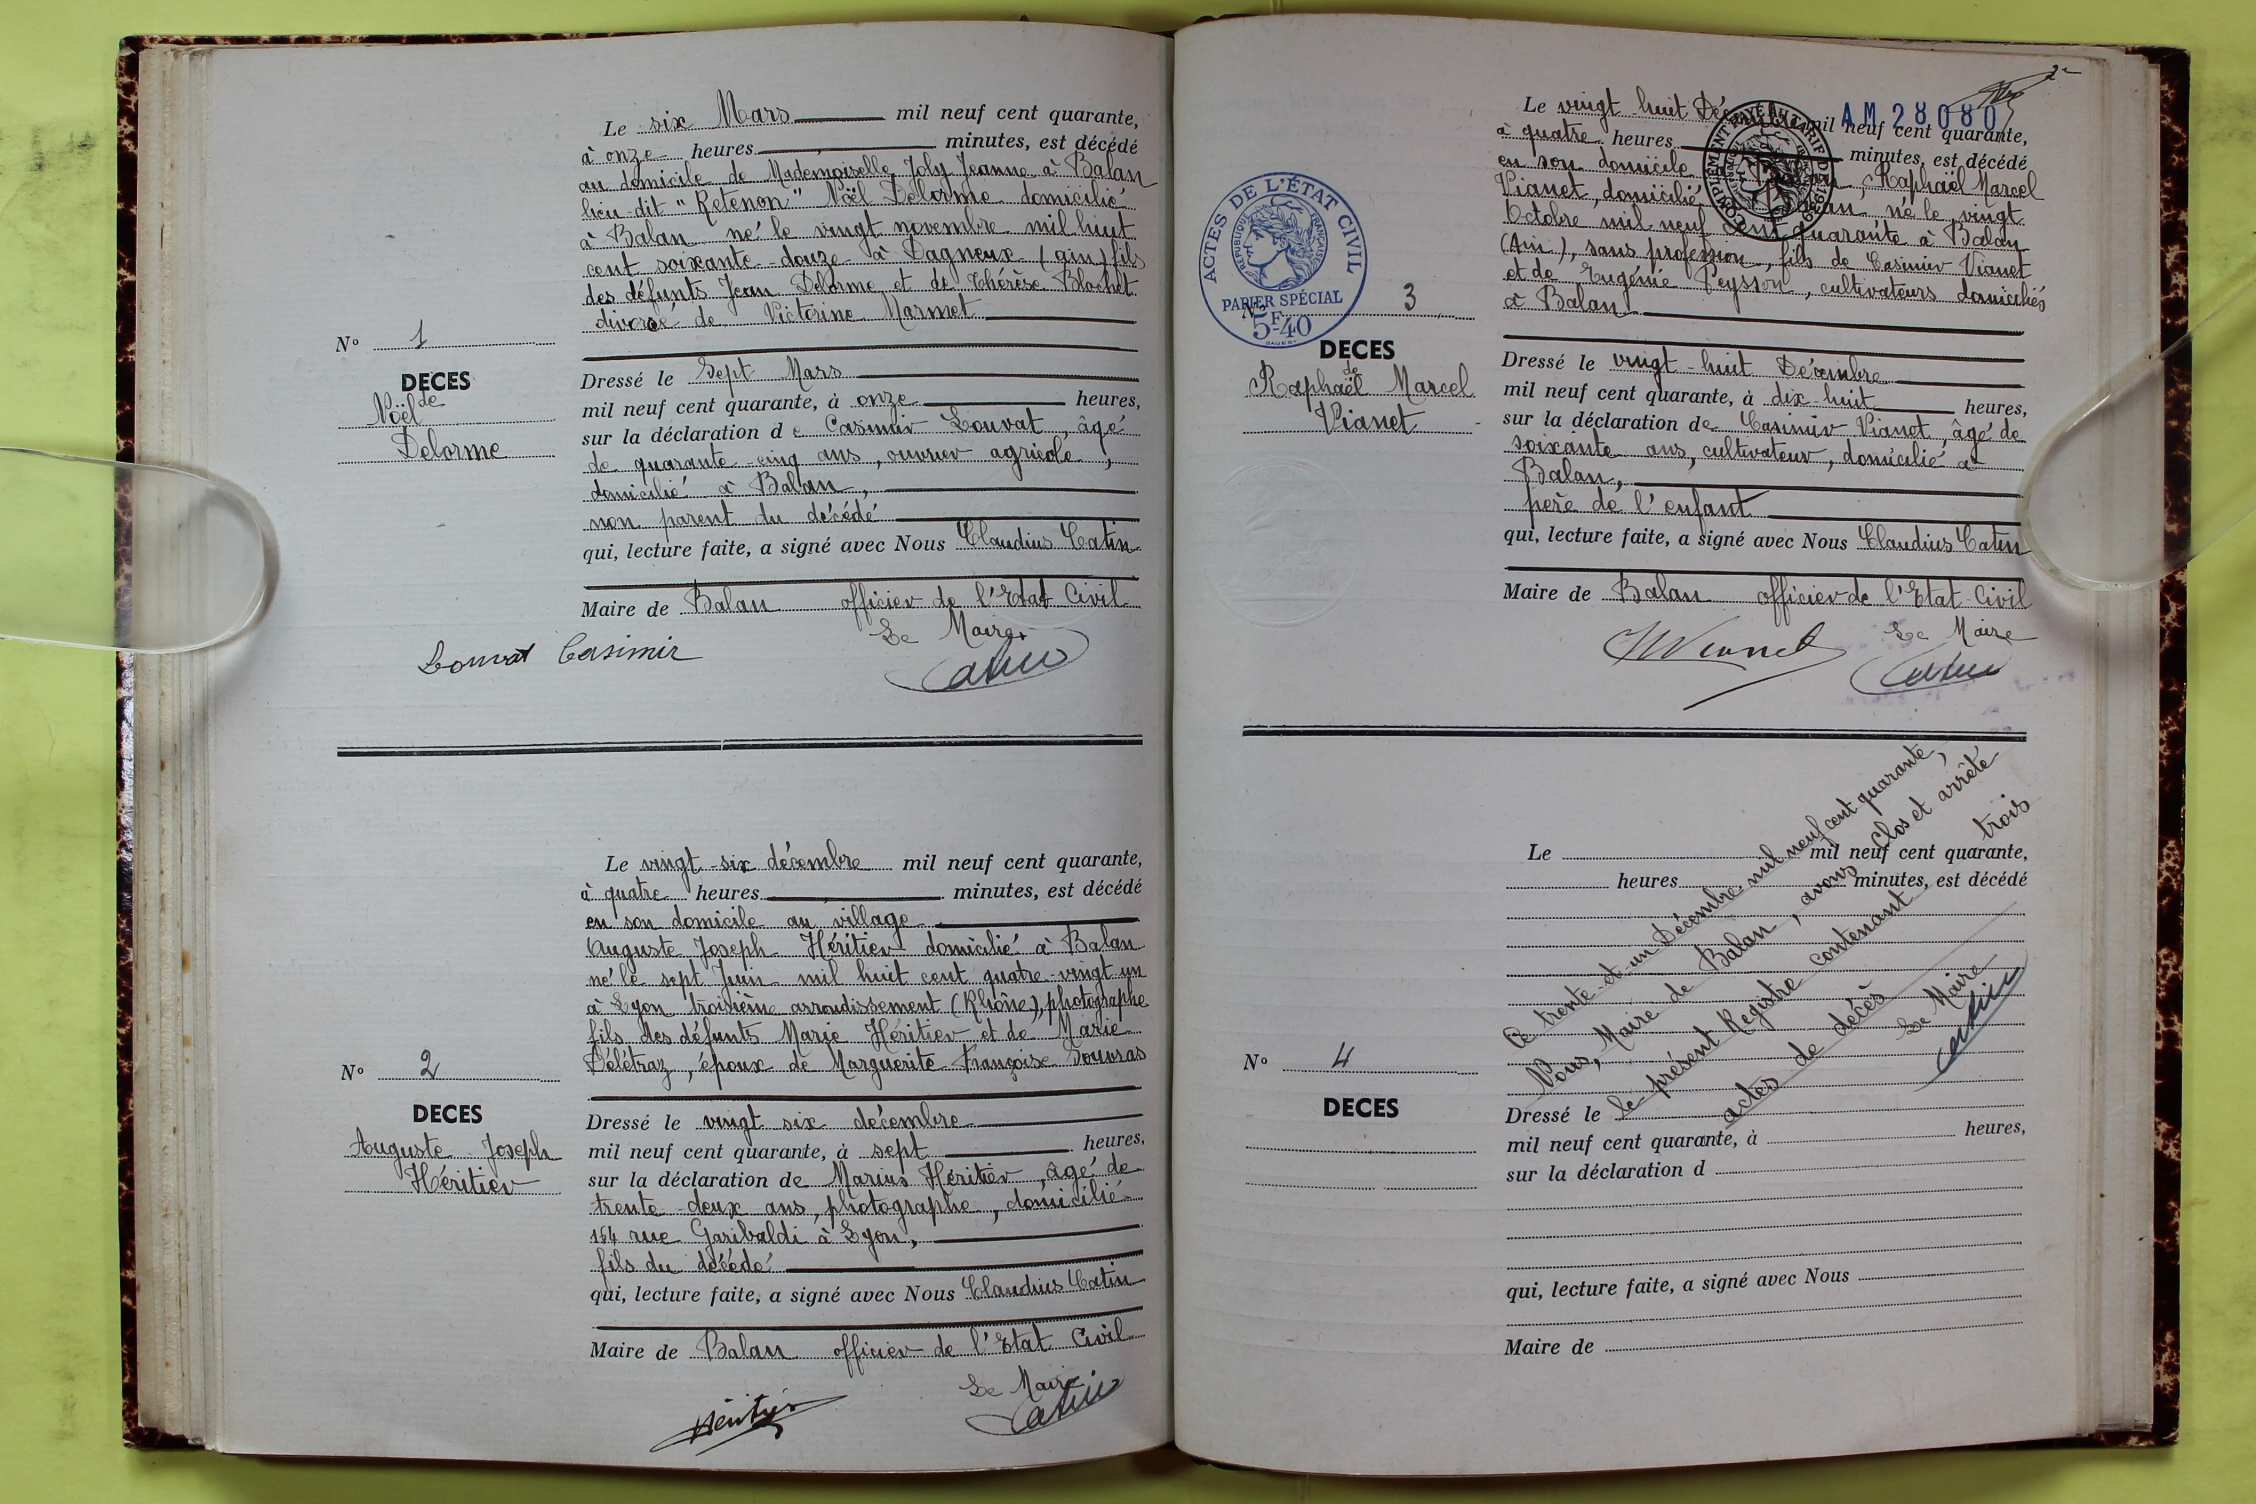 Le six Mars mil neuf cent quarante,
à onze heures minutes, est décédé
au domicile de Mademoiselle Joly Jeanne à Balan
lieu-dit "Retenon" Noël Delorme domicilié
à Balan né le vingt novembre mil huit
cent soixante douze à Dagneux (ain) fils
des défunts Jean Delorme et de Thérèse Blochet
divorcé de Victorine Marmet
N° 1
DECES
de
Noël
Delorme
Dressé le Sept Mars
mil neuf cent quarante, à onze heures,
sur la déclaration de Casimir Louvat, âgé
de quarante-cinq ans, ouvrier agricole,
domicilié à Balan,
non parent du décédé
qui, lecture faite, a signé avec Nous Claudius Catin
Maire de Balan officier de l'Etat Civil
Le Maire
Louvat Casimir
Catin
Le vingt-six décembre mil neuf cent quarante,
à quatre heures minutes, est décédé
en son domicile au village
Auguste Joseph Héritier domicilié à Balan
né le sept Juin mil huit cent quatre-vingt-un
à Lyon troisième arrondissement (Rhône), photographe
fils des défunts Marie Héritier et de Marie
Délétraz, époux de Marguerite Françoise Douras
N° 2
DECES
Auguste Joseph
Héritier
Dressé le vingt six décembre
mil neuf cent quarante, à sept heures,
sur la déclaration de Marius Héritier, âgé de
trente-deux ans, photographe, domicilié
164 rue Garibaldi à Lyon,
fils du décédé
qui, lecture faite, a signé avec Nous Claudius Catin
Maire de Balan officier de l'Etat Civil
Le Maire
Héritier
Catin
2
AM 28080
Le vingt-huit Décembre mil neuf cent quarante,
à quatre heures minutes, est décédé
en son domicile à Balan, Raphaël Marcel
Vianet, domicilié à Balan né le vingt
Octobre mil neuf cent quarante à Balan
(Ain), sans profession, fils de Casimir Vianet
et de Eugénie Peysson, cultivateurs domiciliés
à Balan
ACTES DE L'ÉTAT CIVIL
RÉPUBLIQUE FRANÇAISE
PAPIER SPÉCIAL
5F40
N° 3
DECES
de
Raphaël Marcel
Vianet
Dressé le vingt-huit Décembre
mil neuf cent quarante, à dix-huit heures,
sur la déclaration de Casimir Vianet, âgé de
soixante ans, cultivateur, domicilié à
Balan,
père de l'enfant
qui, lecture faite, a signé avec Nous Claudius Catin
Maire de Balan officier de l'Etat-Civil
Le Maire
Vianet
Catin
Le mil neuf cent quarante,
heures minutes, est décédé
Ce trente-et-un Décembre mil neuf cent quarante,
Nous, Maire de Balan, avons clos et arrêté
le présent Registre contenant trois
actes de décès
Le Maire
Catin
N° 4
DECES
Dressé le
mil neuf cent quarante, à heures,
sur la déclaration d
qui, lecture faite, a signé avec Nous
Maire de